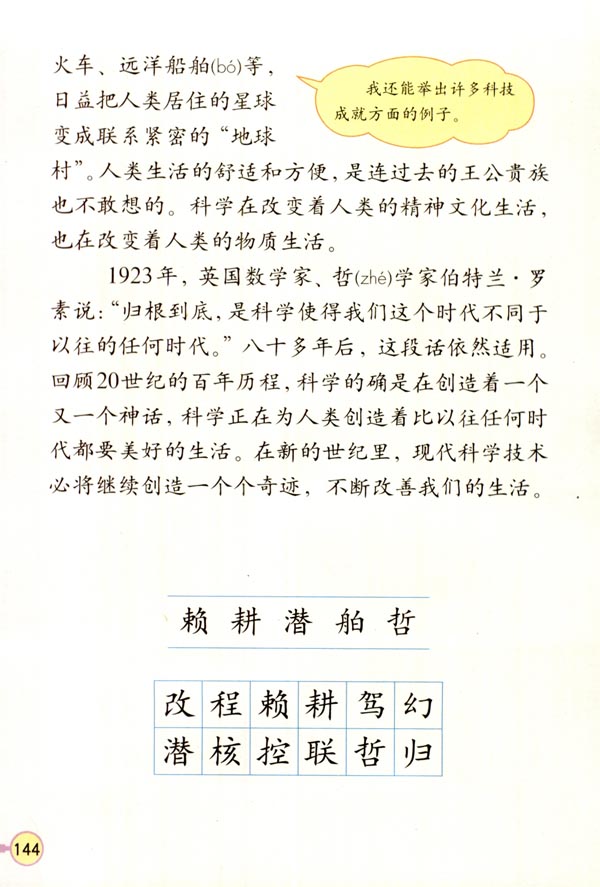 火车、远洋船舶(bó)等，
日益把人类居住的星球
变成联系紧密的“地球
村”。人类生活的舒适和方便，是连过去的王公贵族
也不敢想的。科学在改变着人类的精神文化生活，
也在改变着人类的物质生活。
我还能举出许多科技
成就方面的例子。
1923年，英国数学家、哲(zhé)学家伯特兰·罗
素说：“归根到底，是科学使得我们这个时代不同于
以往的任何时代。”八十多年后，这段话依然适用。
回顾20世纪的百年历程，科学的确是在创造着一个
又一个神话，科学正在为人类创造着比以往任何时
代都要美好的生活。在新的世纪里，现代科学技术
必将继续创造一个个奇迹，不断改善我们的生活。
赖 耕 潜 舶 哲
改 程 赖 耕 驾 幻
潜 核 控 联 哲 归
144